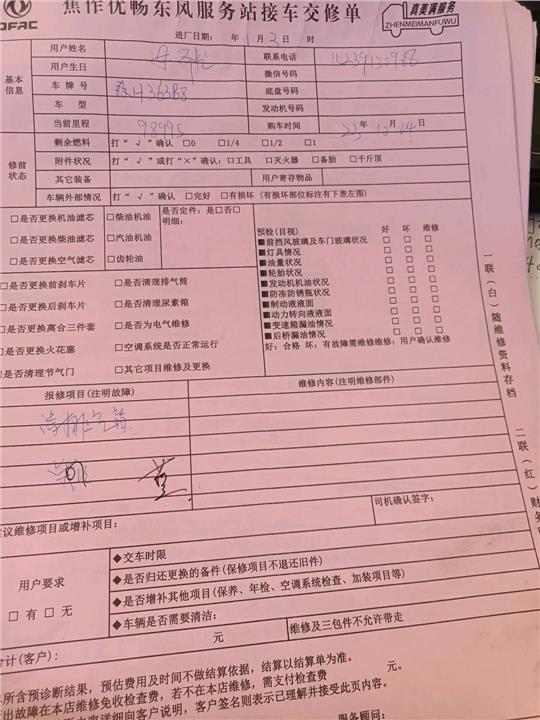 焦作优畅东风服务站接车交修单
DFAC
真美满服务
ZHENMEIMANFUWU
进厂日期： 年 1 月 3 日 时
基本信息
用户姓名
联系电话
用户生日
微信号码
车牌号 H36388
底盘号码
车型
发动机号码
当前里程 98995
购车时间 23 年 12 月 24 日
修前状态
剩余燃料 打“√”确认 □0 □1/4 □1/2 □1
附件状况 打“√”或打“×”确认：□工具 □灭火器 □备胎 □千斤顶
其它装备
用户寄存物品
车辆外部情况 打“√”确认 □完好 □有损坏（有损坏部位标注有下表左图）
□是否更换机油滤芯 □柴油机油 是否定件：是□否□
明细：
□是否更换柴油滤芯 □汽油机油
□是否更换空气滤芯 □齿轮油
□是否更换前刹车片 □是否清理排气筒
□是否更换后刹车片 □是否清理尿素箱
□是否更换离合三件套 □是否为电气维修
□是否更换火花塞 □空调系统是否正常运行
□是否清理节气门 □其它项目维修及更换
预检（目视） 好 坏 维修
■前挡风玻璃及车门玻璃状况 □ □ □
■灯具情况 □ □ □
■油量状况 □ □ □
■轮胎状况 □ □ □
■发动机机油状况 □ □ □
■防冻防锈瓶状况 □ □ □
■制动液液面 □ □ □
■动力转向液液面 □ □ □
■变速箱漏油情况 □ □ □
■后桥漏油情况 □ □ □
好：合格 坏：有故障需维修维修：用户确认维修
报修项目（注明故障）
维修内容（注明维修部件）
清排气筒
司机确认签字：
建议维修项目或增补项目：
用户要求
□ 有 □ 无
◆交车时限
◆是否归还更换的备件（保修项目不退还旧件）
◆是否增补其他项目（保养、年检、空调系统检查、加装项目等）
◆车辆是否需要清洁：
元
维修及三包件不允许带走
合计（客户）：
所含预诊断结果，预估费用及时间不做结算依据，结算以结算单为准。
出故障在本店维修免收检查费，若不在本店维修，需支付检查费 元。
内容详细向客户说明，客户签名则表示已理解并接受此页内容。
服务顾问：
一联（白）随维修资料存档
二联（红）财务